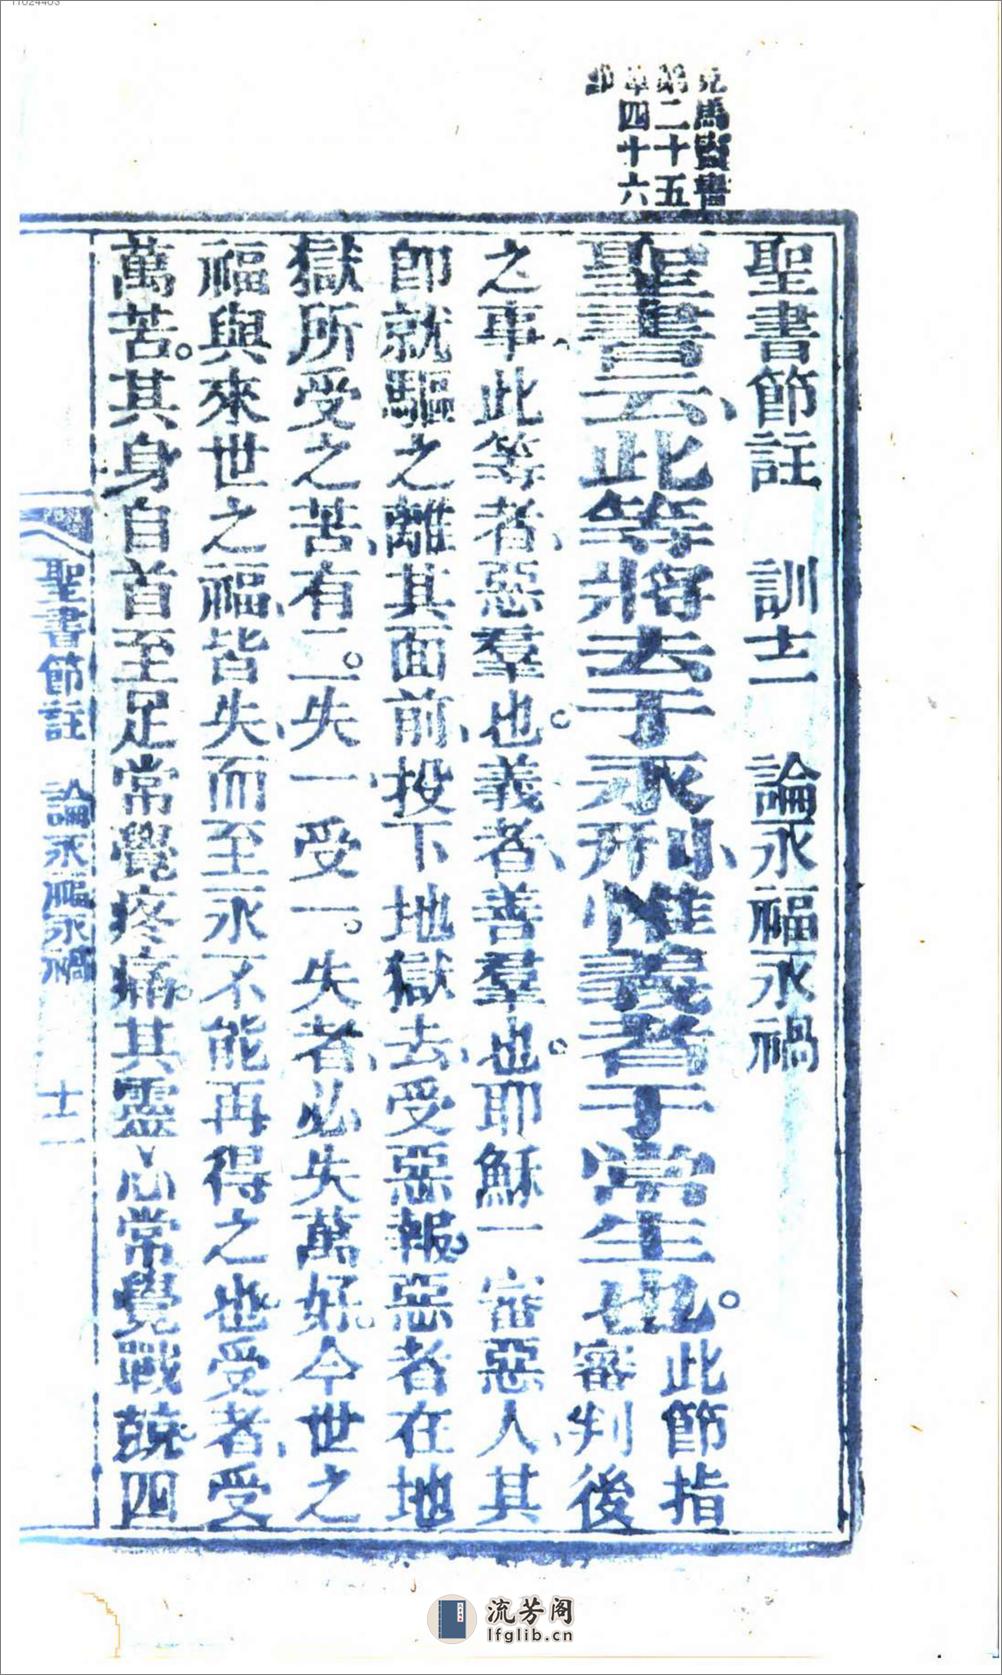 11024403
馬竇書
第二十五
章四十六
節
聖書節註 訓十二 論永福永禍
聖書云、此等將去于永刑、惟義者于常生也。此節指
審判後
之事、此等者、惡羣也。義者、善羣也。耶穌一審惡人、其
即就驅之離其面前、投下地獄、去受惡報、惡者在地
獄所受之苦、有二。失一受一。失者、必失萬好。今世之
福與來世之福、皆失、而至永不能再得之也。受者、受
萬苦。其身自首至足常覺疼痛。其靈心常覺戰兢。四
聖書節註 論永福永禍 十二
流芳阁
lfglib.cn